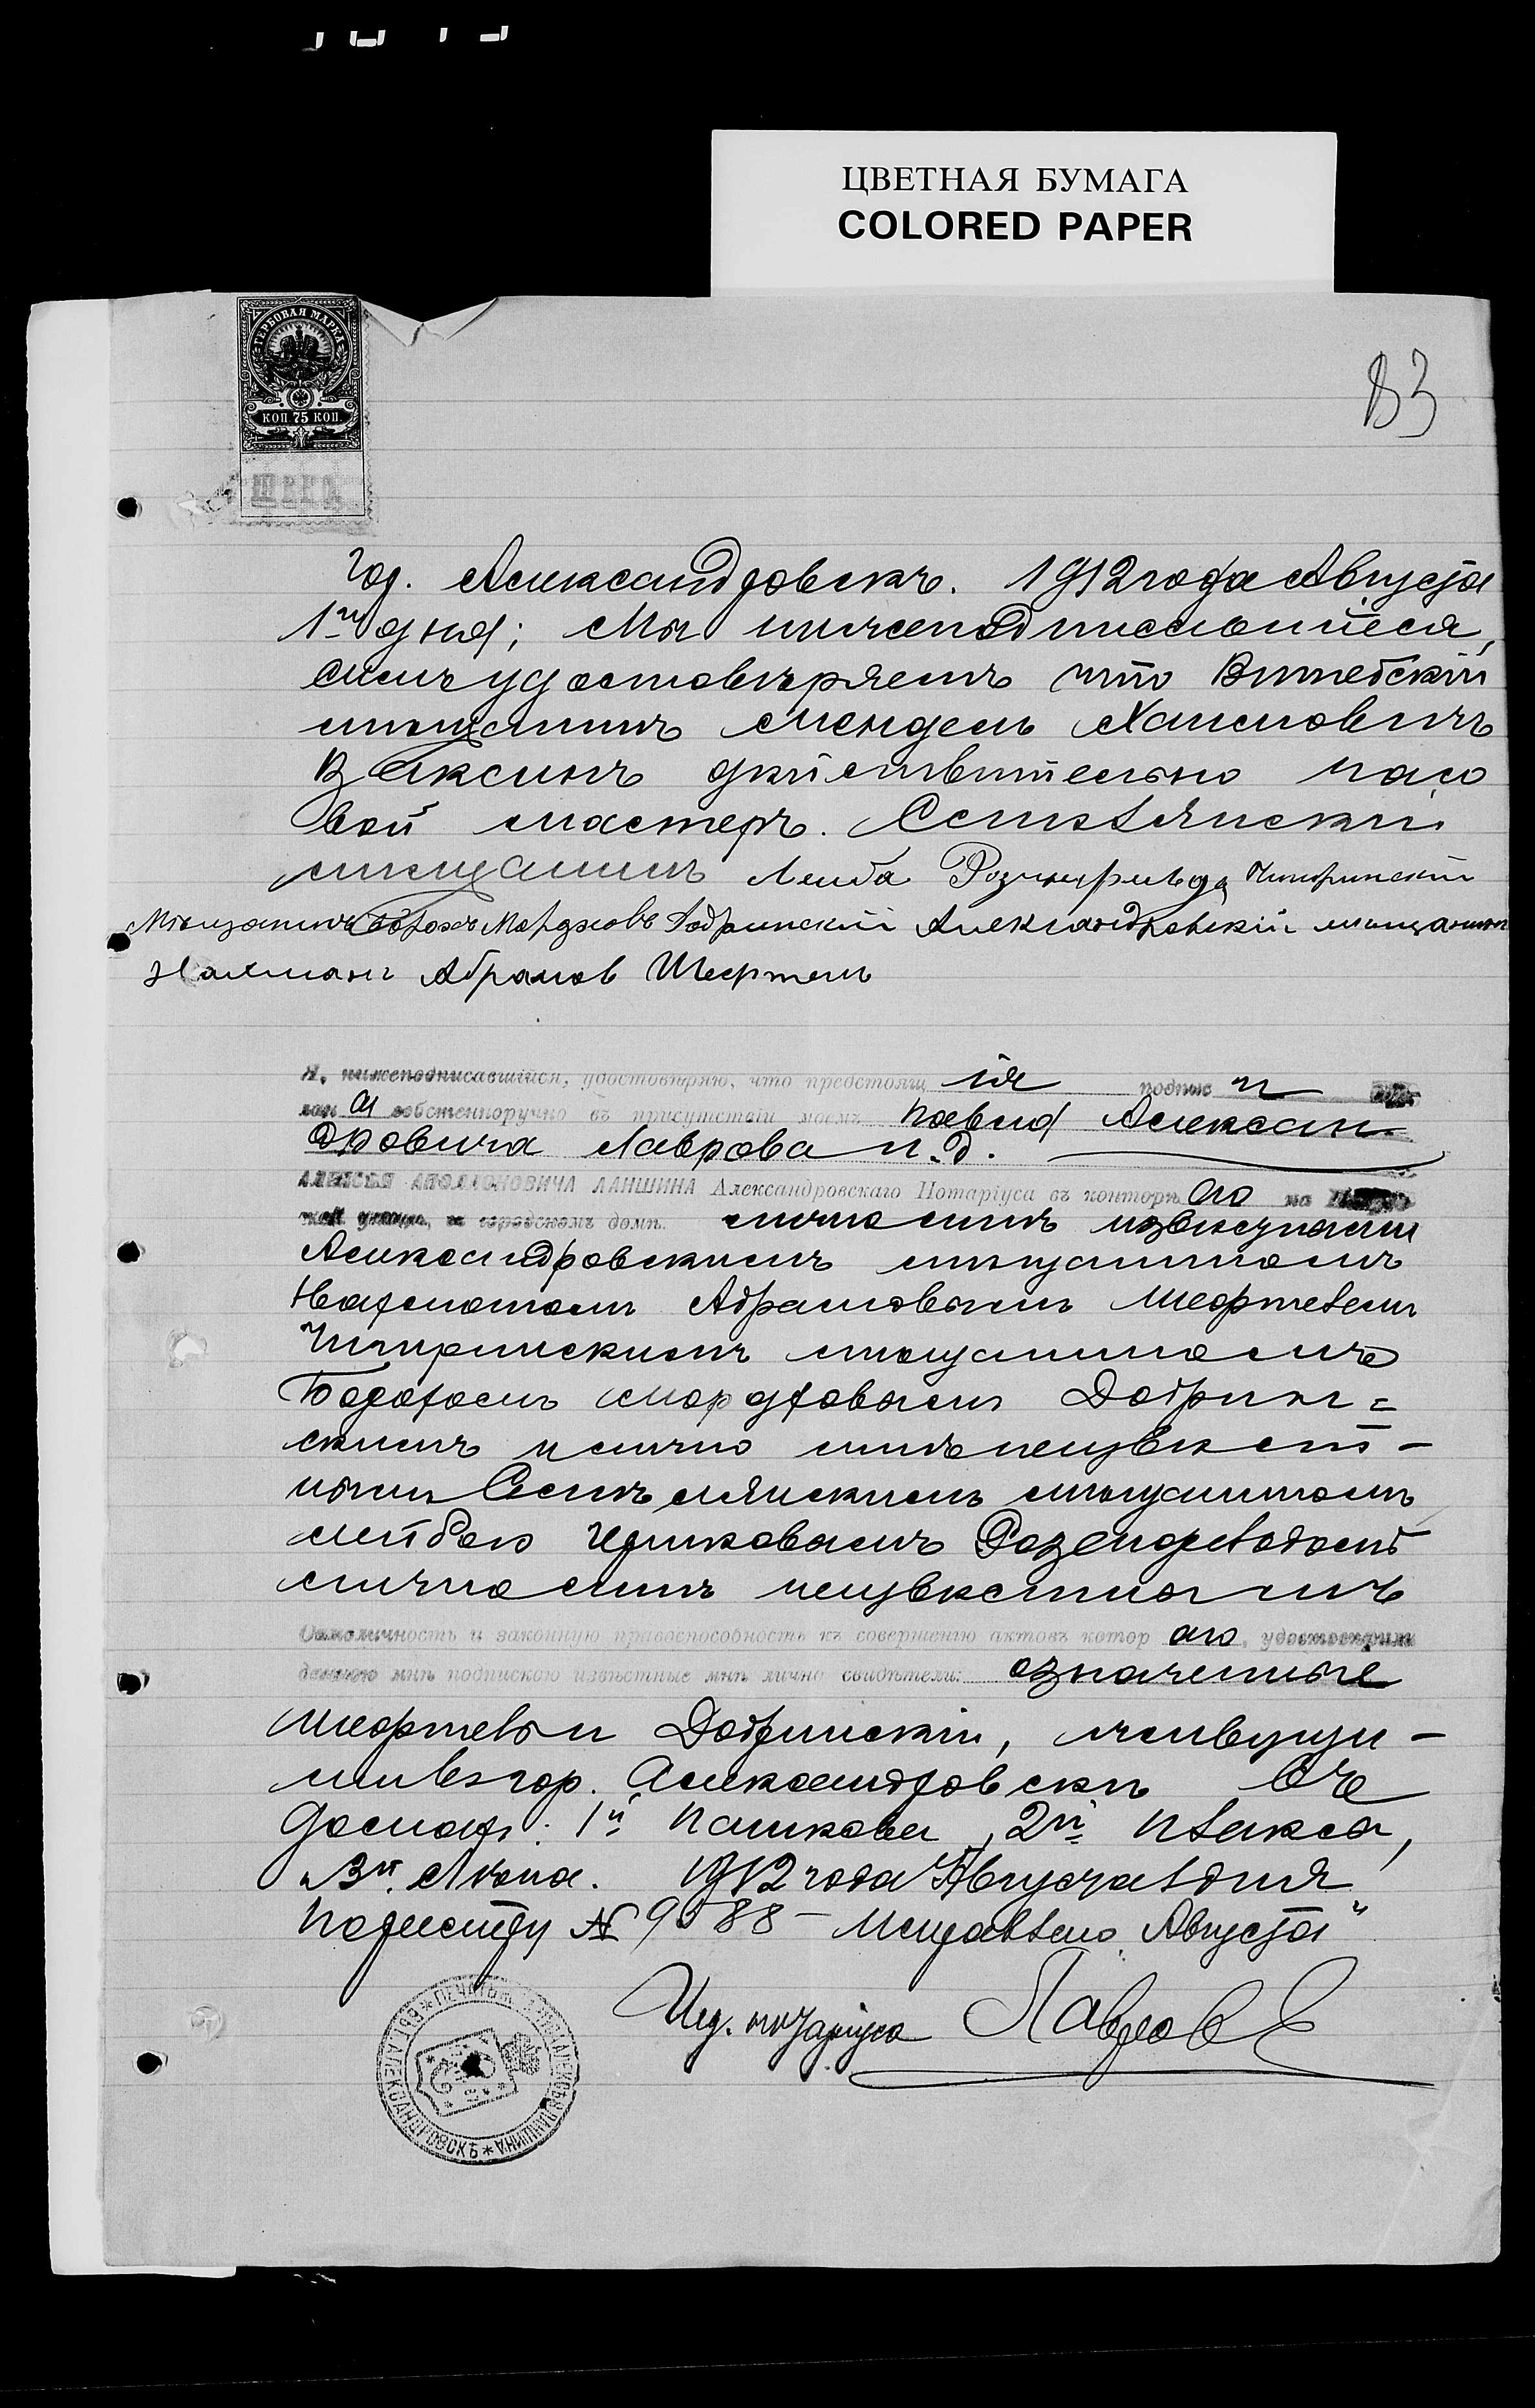 ЦВЕТНАЯ БУМАГА
COLORED PAPER
ГЕРБОВАЯ МАРКА
КОП. 75 КОП.
83
Гор. Александровскъ. 1912 года Августа
1го дня; Мы нижеподписавшіеся,
симъ удостовѣряемъ что Витебскій
мѣщанинъ Мендель Хаимовичъ
Ваксинъ дѣйствительно часо
вой мастеръ.
мѣщанинъ Лейба Чигиринскій
Мѣщанинъ Борохъ Мордховъ Добринскій Александровскій мѣщанинъ
Нахманъ Абрамов Шефтель
Я, нижеподписавшійся, удостовѣряю, что предстоящ ія подпис и
лан а собственноручно въ присутствіи моемъ Павла Алексан
дровича Лаврова и.д.
АЛЕКСѢЯ АПОЛЛОНОВИЧА ЛАНШИНА Александровскаго Нотаріуса въ конторѣ его на
городскомъ домѣ. лично мнѣ извѣстными
Александровскимъ мѣщаниномъ
Нахманомъ Абрамовымъ Шефтелемъ
Чигиринскимъ мѣщаниномъ
Борохомъ Мордховымъ Добрин=
скимъ и лично мнѣ неизвѣст-
нымъ мѣщаниномъ
Лейбою
лично мнѣ неизвѣстнымъ
Самоличность и законную правоспособность къ совершенію актовъ котор аго, удостовѣрили
данною мнѣ подпискою извѣстные мнѣ лично свидѣтели: означенные
Шефтель и Добринскій, живущи-
ми въ гор. Александровскѣ въ
домахъ: 1й Пашкова, 2й
3й 1912 года Августа 1 дня
По реестру № 9588 Исправлено „Августа“
Исд. нотаріуса Лавровъ
ПЕЧАТЬ АЛЕКСѢЯ ЛАНШИНА * ВЪ Г. АЛЕКСАНДРОВСКѢ *